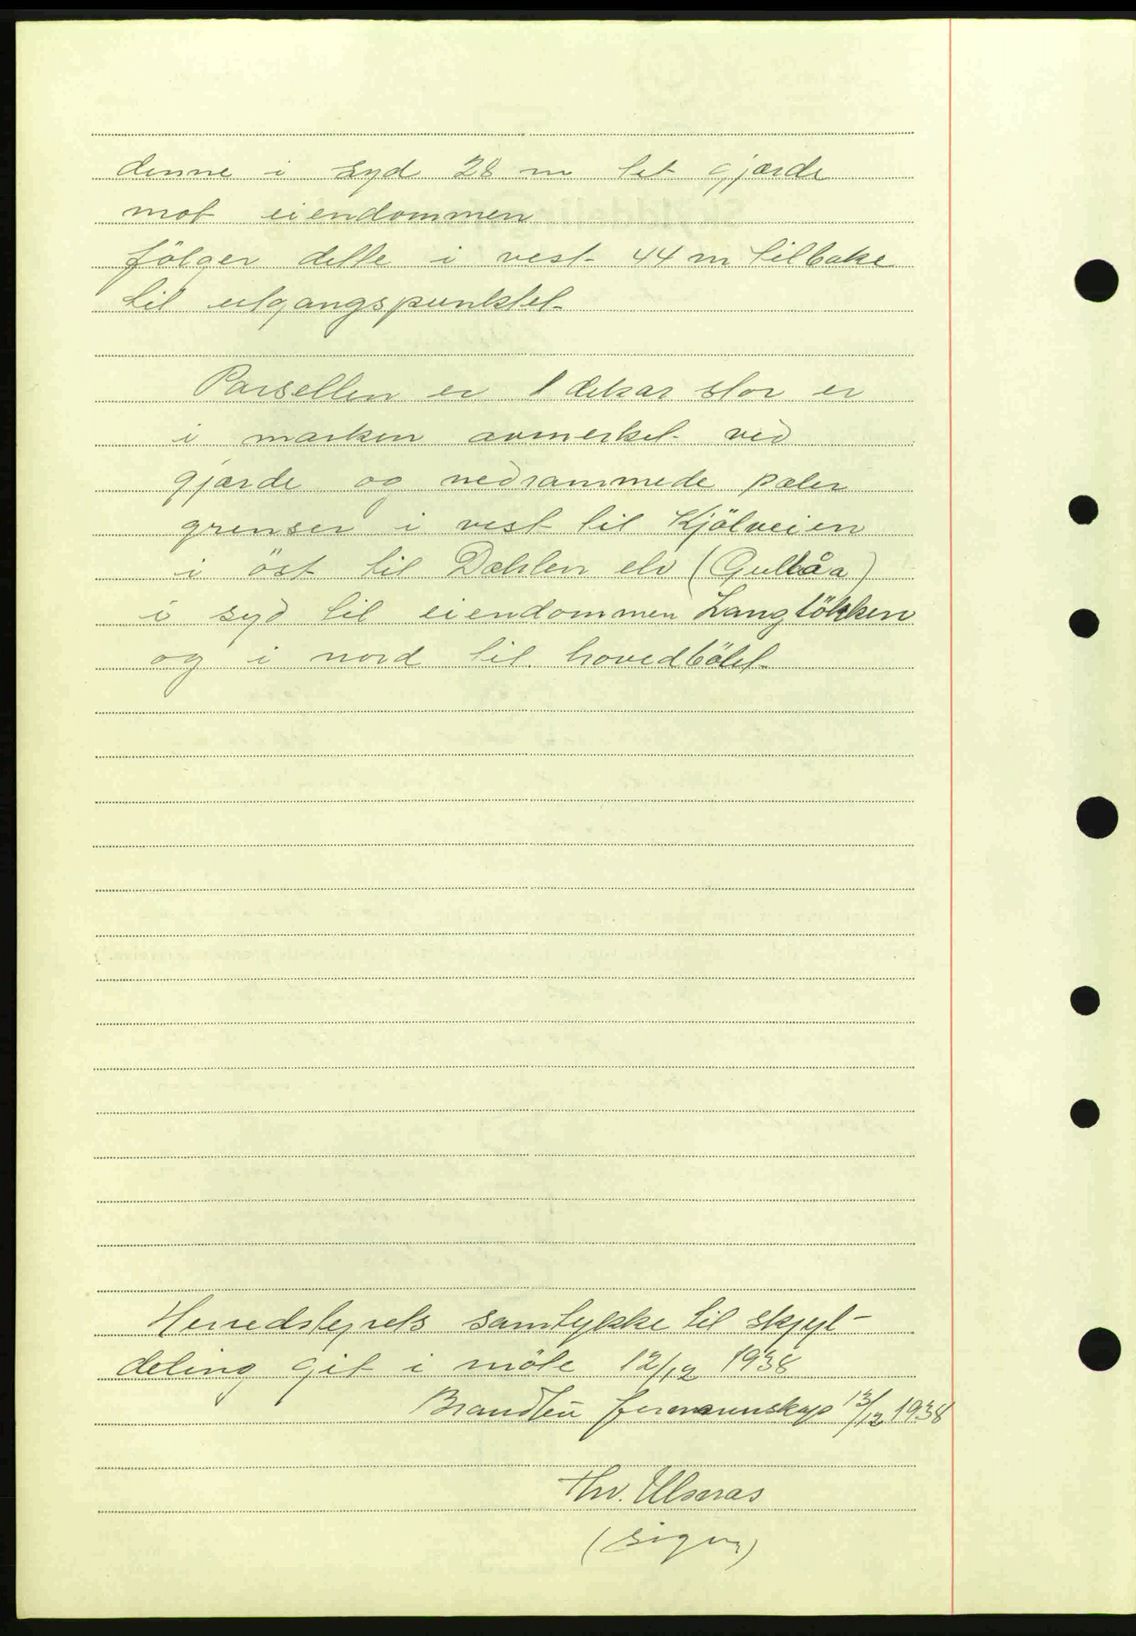 denne i syd 28 m til gjærde
mot eiendommen
følger dette i vest 44 m tilbake
til utgangspunktet.
Parsellen er 1 dekar stor er
i marken avmerket ved
gjærde og nedrammede pæler
grenser i vest til Kjølveien
i öst til Dæhlen elv (Gullåa)
i syd til eiendommen Langlökken
og i nord til hovedbölet
Herredstyrets samtykke til skyl-
deling git i möte 12/12 1938
Brandbu formannskap 13/12 1938
Thv. Ulsnæs
(sign)